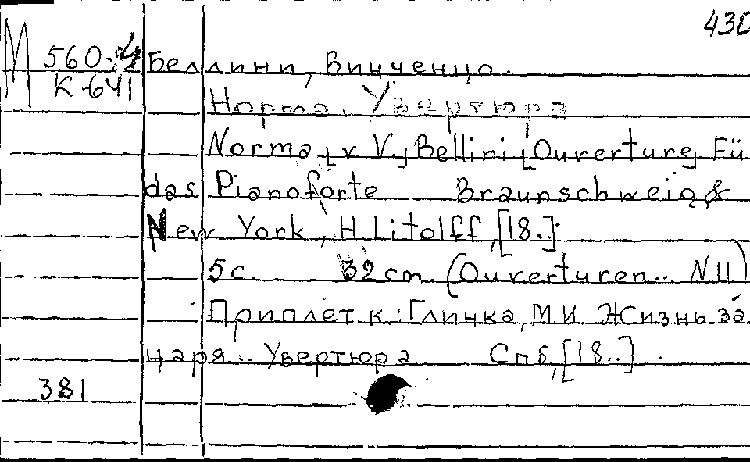 430
М 560-4 Беллини, Винченцо.
К-641
Норма. Увертюра
Norma, v V. Bellini [Ouverture] Fü
das Pianoforte Braunschweig &
New York, H. Litolff, [18..]
5 с. 32 cm (Ouverturen.. N11)
Приплет к: Глинка, М.И. Жизнь за
царя.. Увертюра Спб, [18..]
381